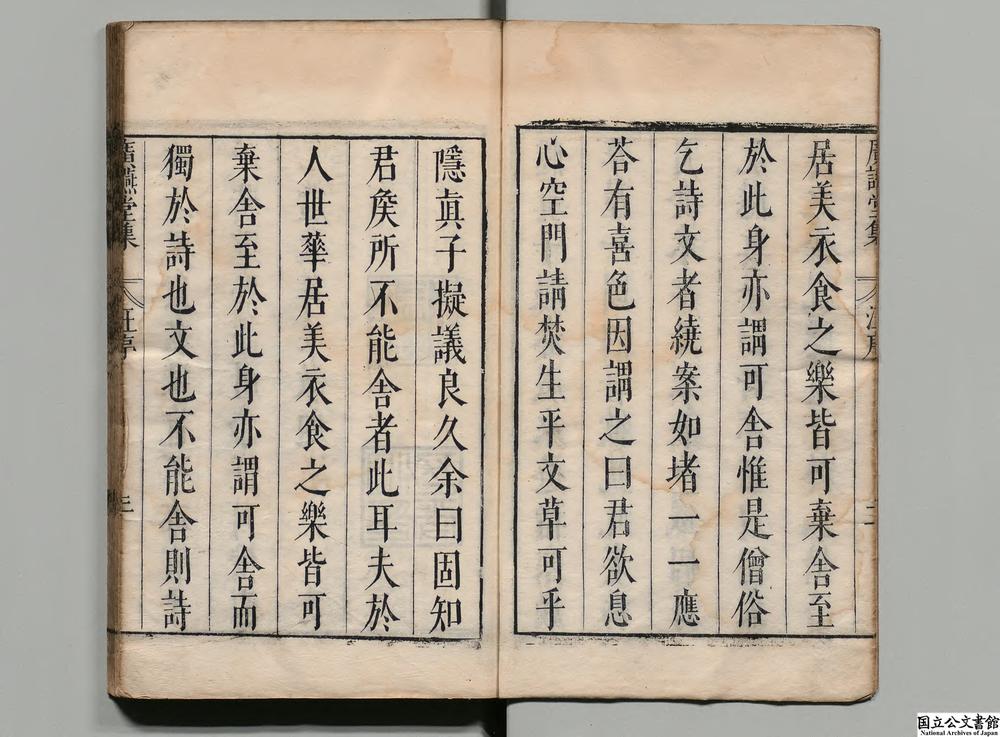 居美衣食之樂皆可棄舍至
於此身亦謂可舍惟是僧俗
乞詩文者繞案如堵一一應
荅有喜色因謂之曰君欲息
心空門請焚生平文草可乎
隱眞子擬議良久余曰固知
君矦所不能舍者此耳夫於
人世華居美衣食之樂皆可
棄舍至於此身亦謂可舍而
獨於詩也文也不能舍則詩
堂集
汪序
国立公文書館
National Archives of Japan